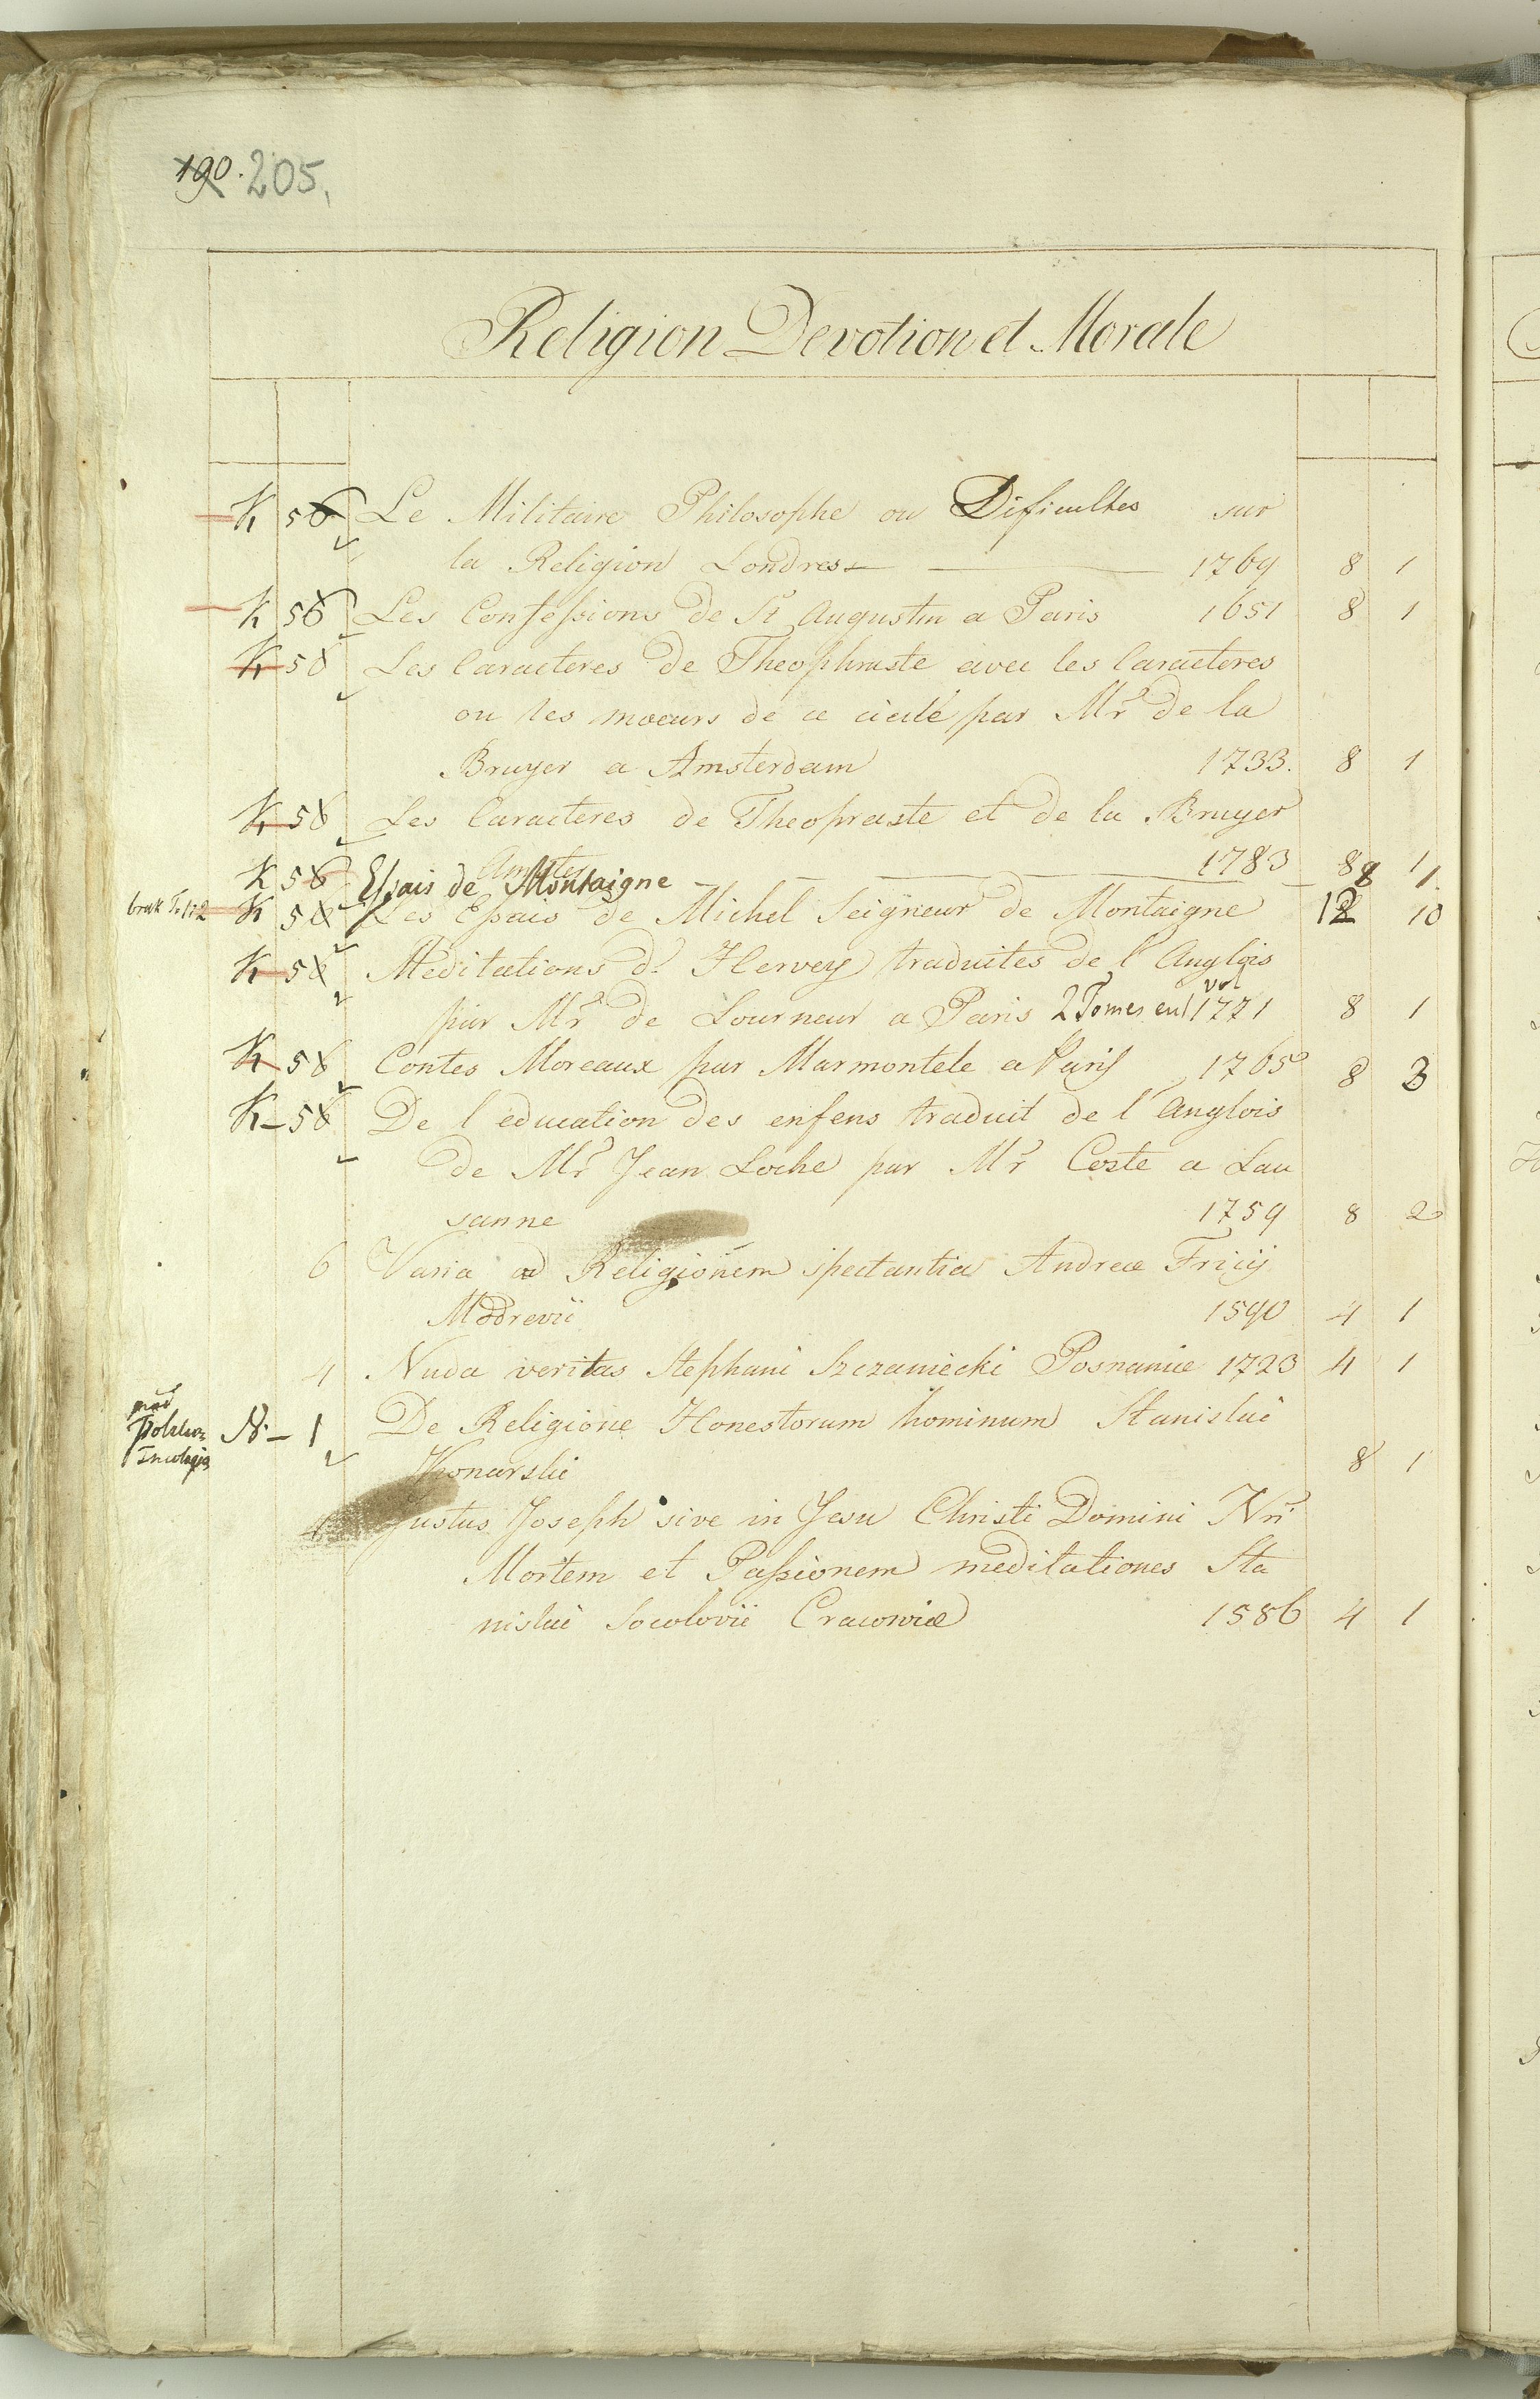 190. 205.
Religion Devotion et Morale
K 56 Le Militaire Philosophe ou Dificultes sur
la Religion Londres 1769 8 1
K 56 Les Confessions de St Augustin a Paris 1651 8 1
K 56 Les Caracteres de Theophraste avec les Caracteres
ou les moeurs de ce par Mr de la
Bruyer a Amsterdam 1733. 8 1
K 56 Les Caracteres de Theopraste et de la Bruyer
Amster 1783 8 1
K 56 Essais de Montaigne 8 1
brak T. 1 i 2 K 56 Les Essais de Michel Seigneur de Montaigne 12 10
K 56 Meditations d'Hervey traduites de l'Anglois
par Mr de Tourneur a Paris 2 Tomes en 1 vol 1771 8 1
K 56 Contes Moreaux par Marmontele a Paris 1765 8 3
K 56 De l'education des enfens traduit de l'Anglois
de Mr Jean Locke par Mr Coste a Lau
sanne 1759 8 2
6 Varia ad Religionem spectantia Andreæ Fricij
Modrevii 1590 4 1
4 Nuda veritas Stephani Szczaniecki Posnaniæ 1723 4 1
N. 1 De Religione Honestorum hominum Stanislai
Konarski 8 1
Justus Joseph sive in Jesu Christi Domini Nri
Mortem et Passionem meditationes Sta
nislai Socolovii Cracoviæ 1586 4 1